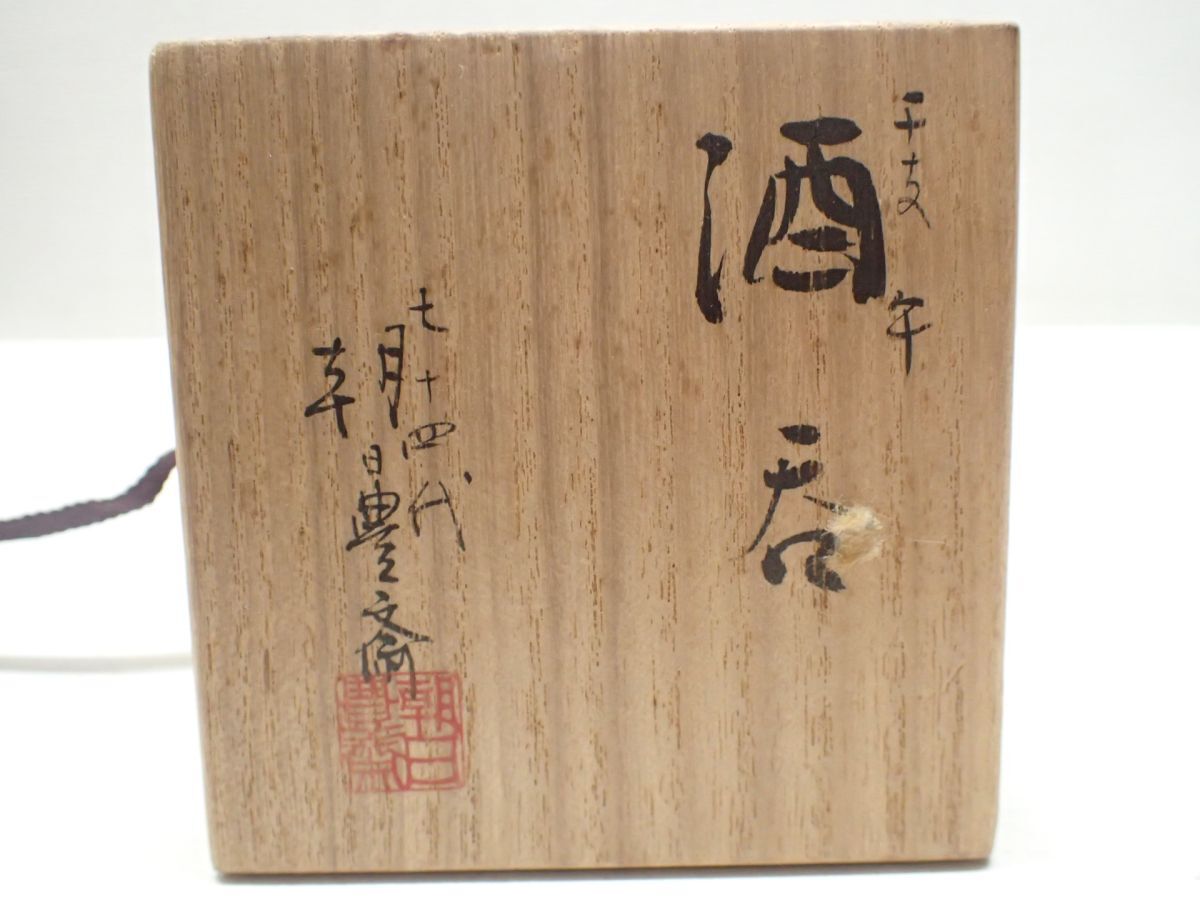 干支 午
酒呑
七十四代
朝日豊斎
朝日
豊斎